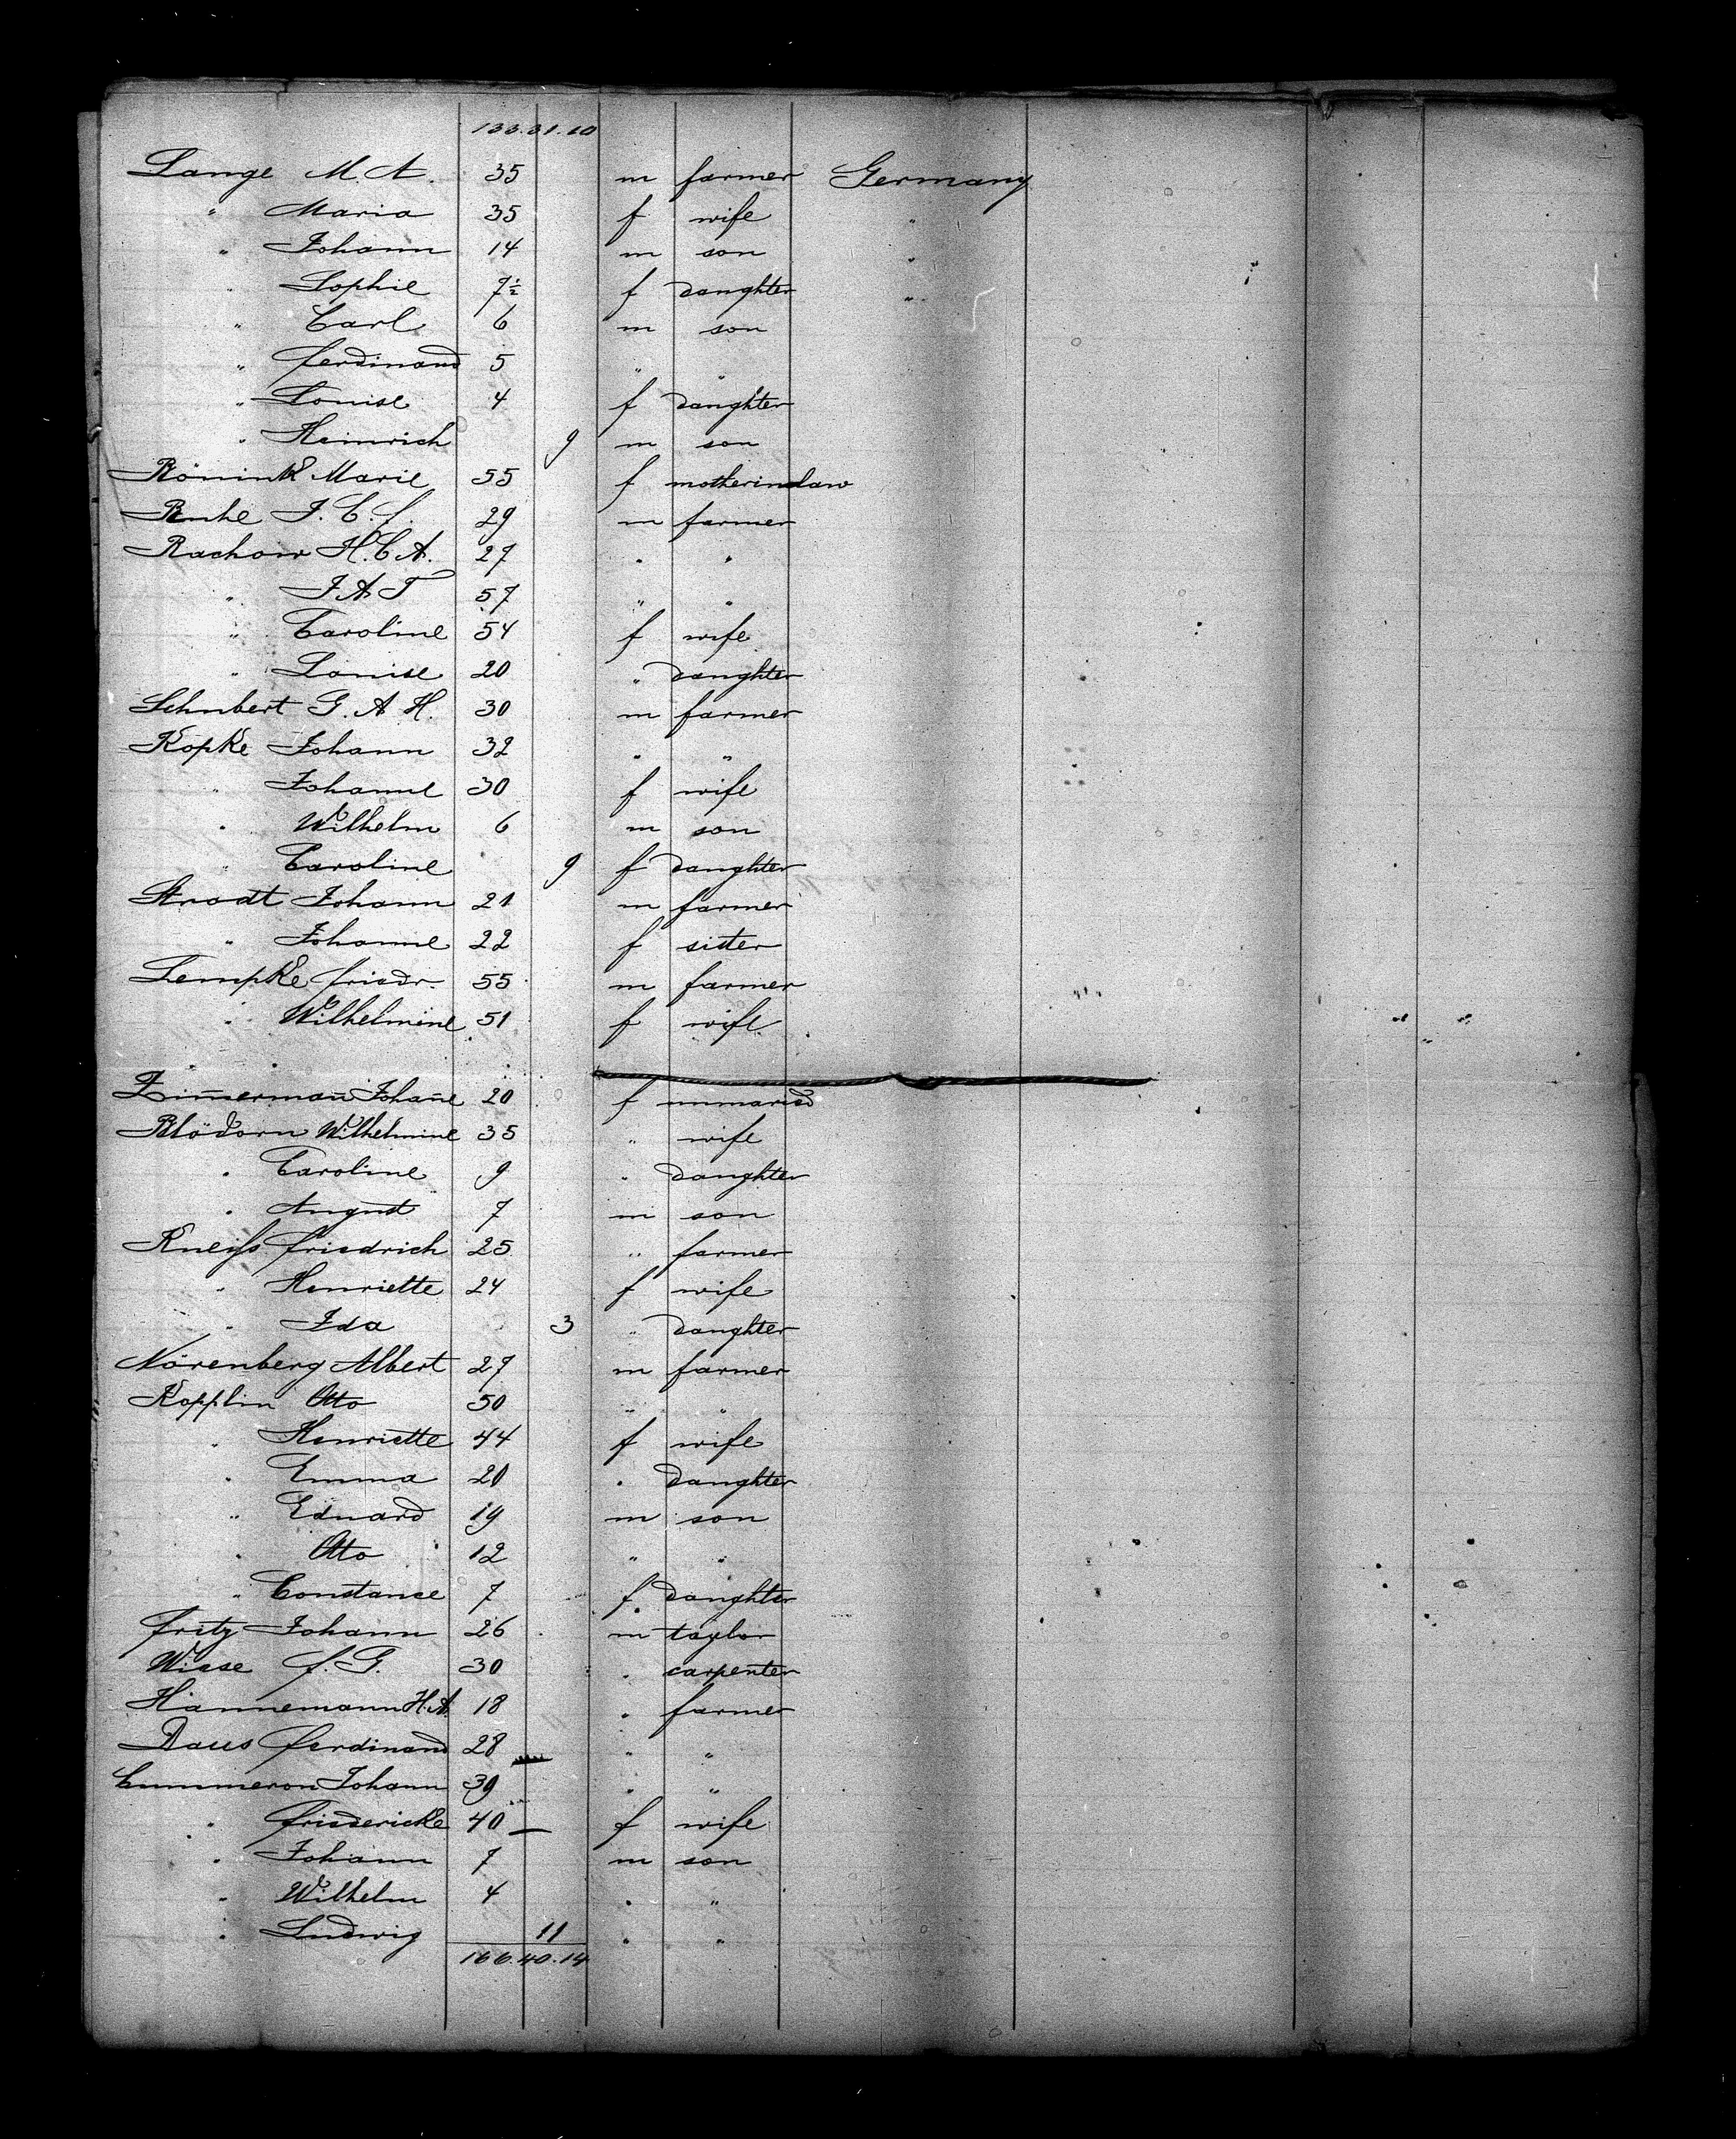 133.31.10
Lange M. A. 35 m farmer Germany
" Maria 35 f wife "
" Johann 14 m son "
" Sophie 7½ f daughter "
" Carl 6 m son
" Ferdinand 5 " "
" Louise 4 f daughter
" Heinrich 9 m son
Rönink Marie 55 f motherinlaw
Ruhe J. C. F. 29 m farmer
Rachow H. C. A. 27 " "
" J. A. T 57 " "
" Caroline 54 f wife
" Louise 20 " daughter
Schubert G. A. H. 30 m farmer
Köpke Johann 32 " "
" Johanne 30 f wife
" Wilhelm 6 m son
" Caroline 9 f daughter
Strodt Johann 21 m farmer
" Johanne 22 f sister
Lempke Friedr 55 m farmer
" Wilhelmine 51 f wife
Zim̅erman̅ Johan̅e 20 f unmaried
Blödorn Wilhelmine 35 " wife
" Caroline 9 " daughter
" August 7 m son
Kneiſs Friedrich 25 " farmer
" Henriette 24 f wife
" Ida 3 " daughter
Nörenberg Albert 27 m farmer
Kopplin Otto 50 " "
" Henriette 44 f wife
" Emma 20 " daughter
" Eduard 19 m son
" Otto 12 " "
" Constance 7 f daughter
Fritz Johann 26 m taylor
Wiese F. G. 30 " carpenter
Hannemann H. A. 18 " farmer
Daus Ferdinand 28 " "
Cummeron Johann 39 " "
" Friedericke 40 f wife
" Johann 7 m son
" Wilhelm 4 " "
" Ludwig 11 " "
166.40.14